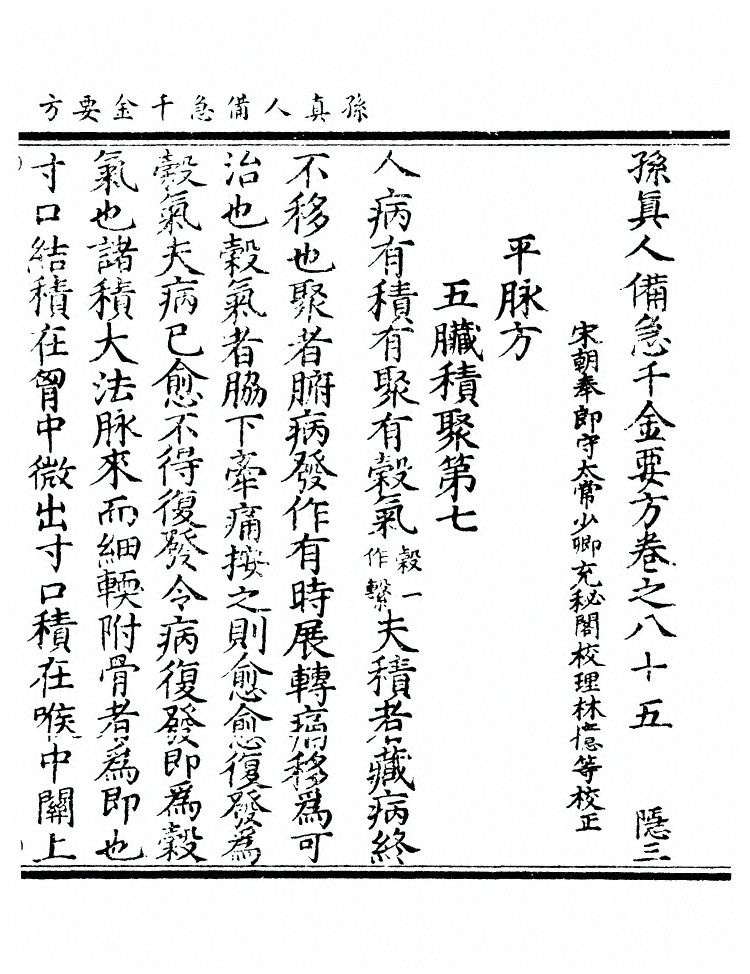 孫真人備急千金要方
孫眞人備急千金要方卷之八十五 隱三
宋朝奉郎守太常少卿充秘閣校理林億等校正
平脉方
五臟積聚第七
人病有積有聚有穀氣穀一作繫夫積者藏病終
不移也聚者腑病發作有時展轉痛移爲可
治也穀氣者脇下牽痛按之則愈愈復發爲
穀氣夫病已愈不得復發今病復發即爲穀
氣也諸積大法脉來而細耎附骨者爲即也
寸口結積在胷中微出寸口積在喉中關上